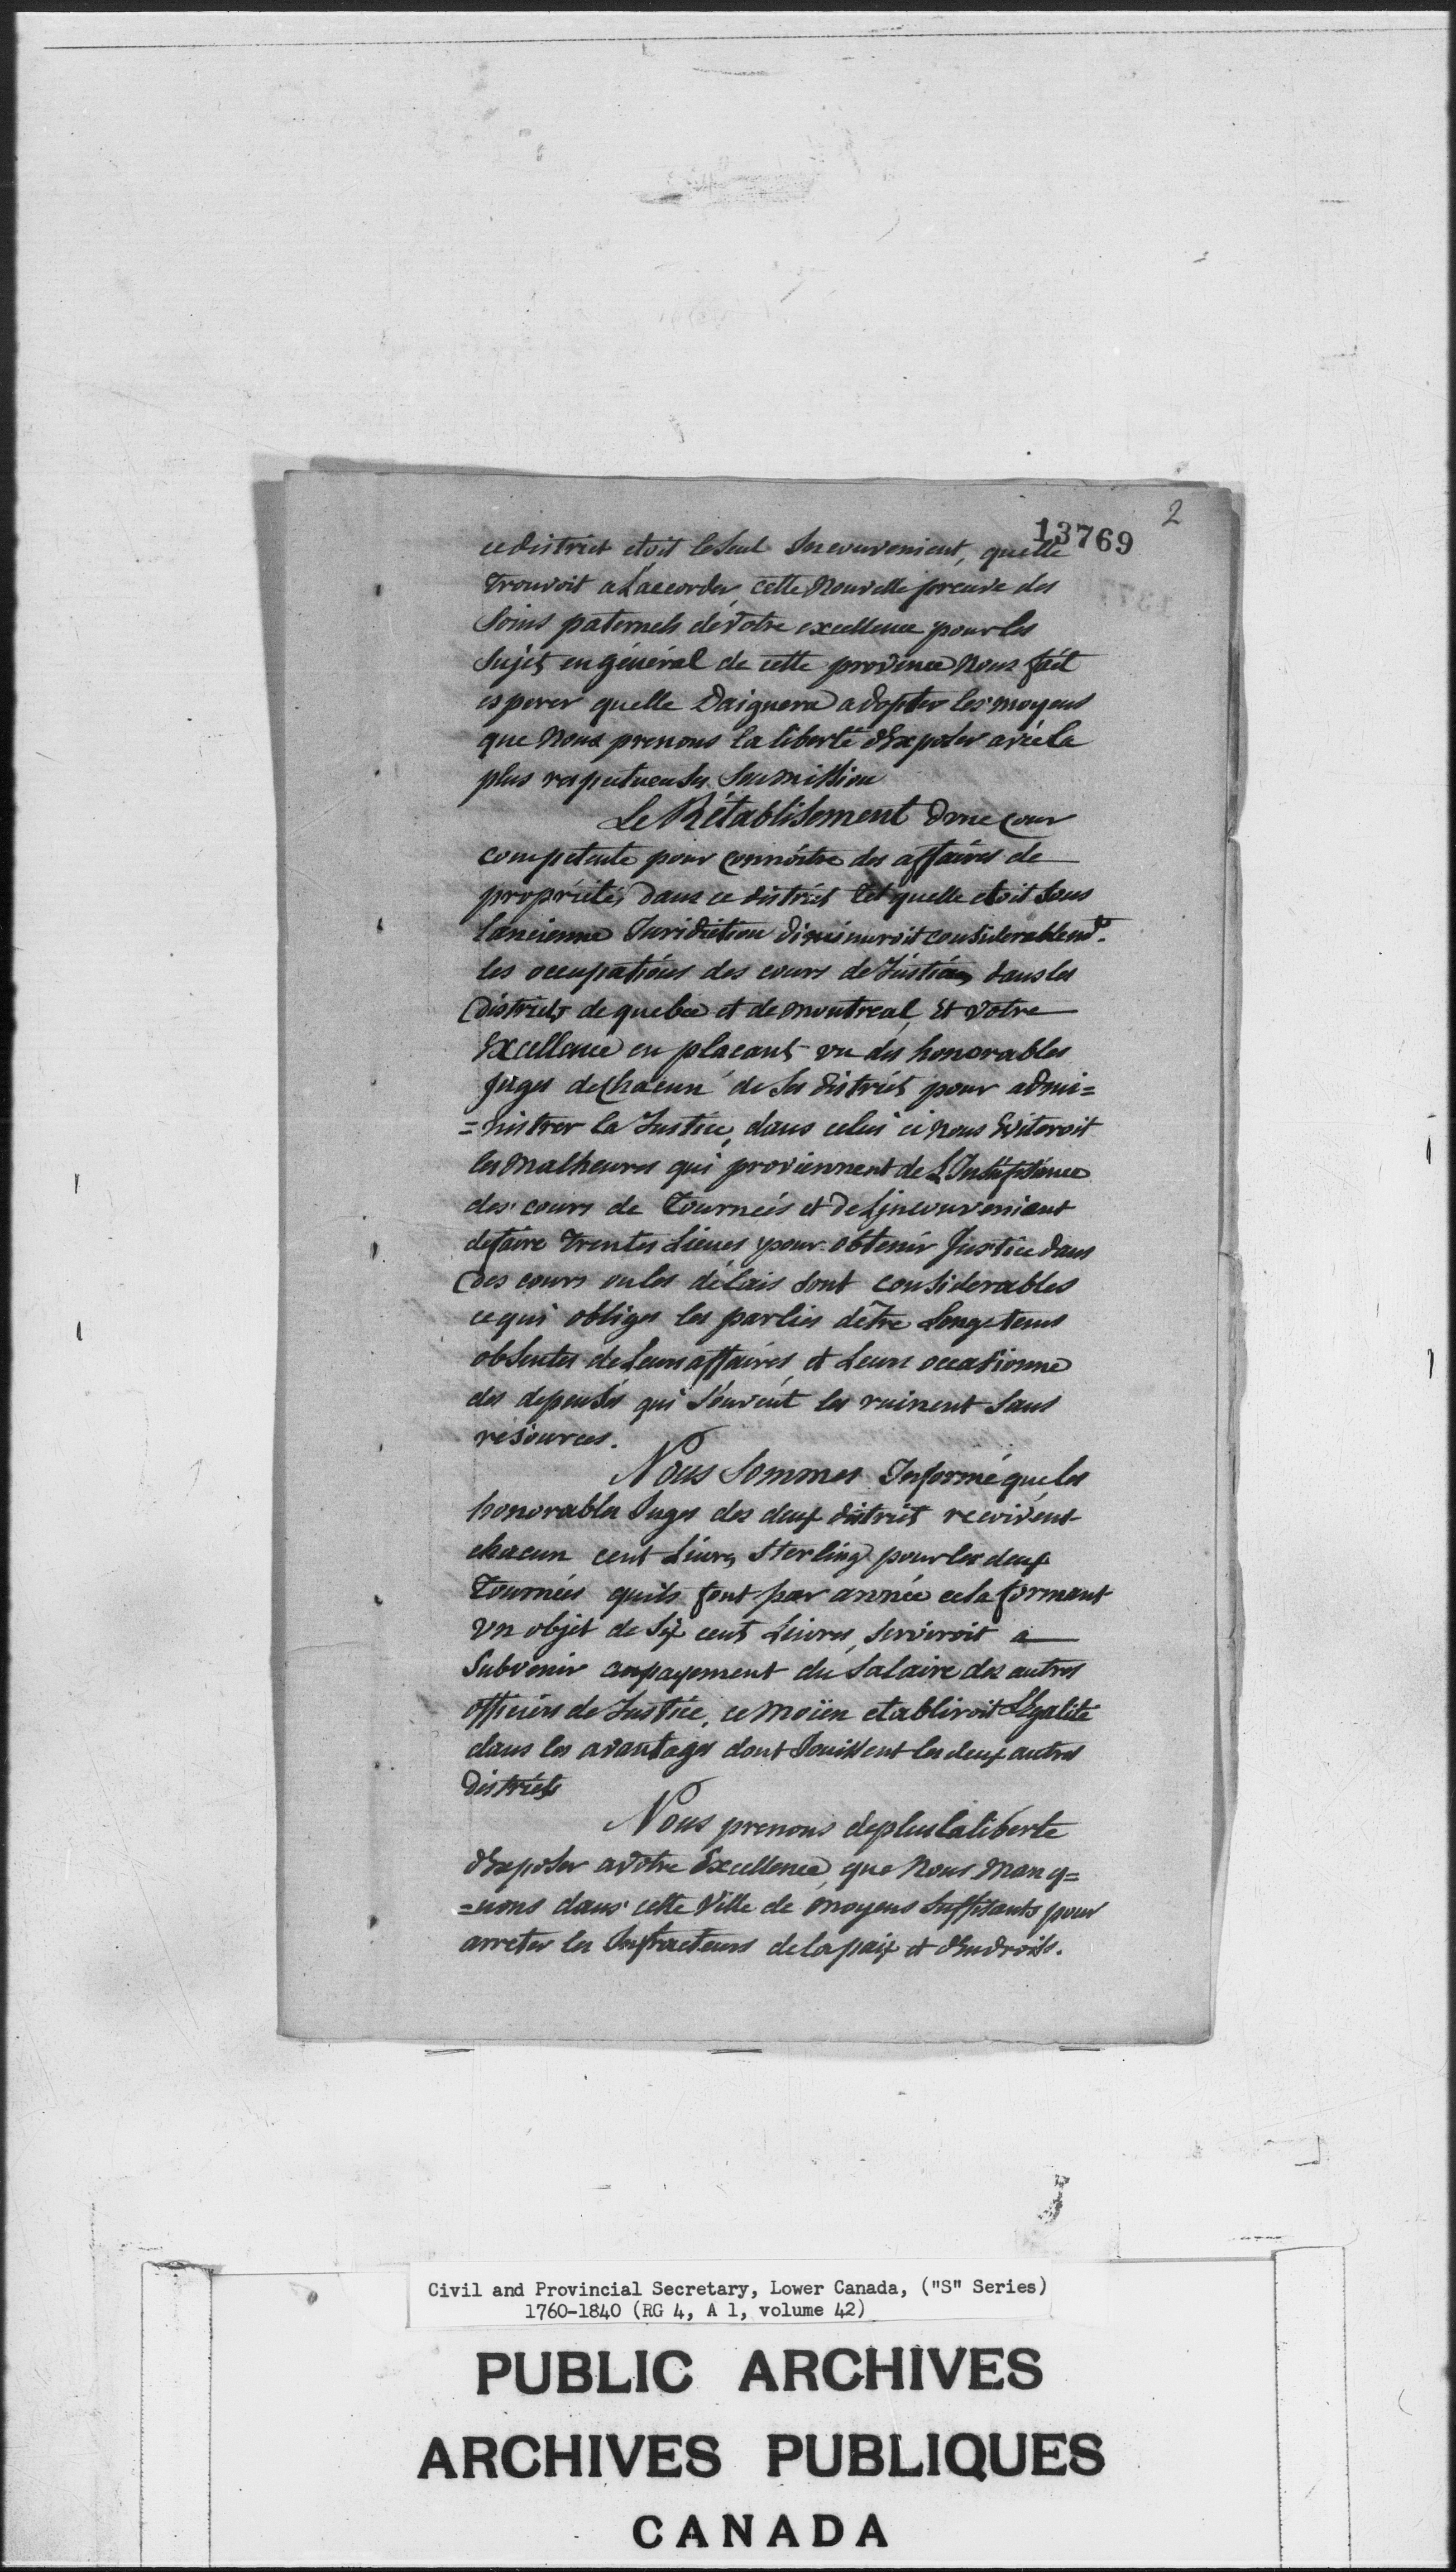 2
13769
ce district etoit le Seul Inconvenient, quelle
trouvoit a L'accorder, cette Nouvelle preuve des
Soins paternels de Votre excellence pour les
Sujets en général de cette province Nous fait
esperer quelle Daignera adopter les moyens
que Nous prenons la liberté d'Exposer avec la
plus respectueuses Soumission
Le Rétablissement d'une Cour
competente pour Connoitre des affaires de
propriétés dans ce district tel quelle etoit Sous
lancienne Juridiction diminuroit considerablemt.
les occupations des cours de Justices dans les
Districts de quebec et de Montreal, Et Votre
Excellence en placant un des honorables
Juges de Chacun de Ses districts pour admi=
=nistrer la Justice, dans celui ci Nous Eviteroit
les Malheures qui proviennent de L'Insufisance
des cours de Tournées et de L'inconvenient
de faire trentes Lieues pour obtenir Justice dans
Des cours ou les délais Sont considerables
ce qui obliges les parties d'être Long-tems
absentes de Leurs affaires, et Leurs occasionne
des depenses qui Souvent les ruinent Sans
résources.
Nous Sommes Informé que les
honorables Juges des deux districts recoivent
chacun cent Livres Sterling pour les deux
Tournées quils font par année cela formant
Un objet de Six cents Livres, Serviroit a
Subvenir au payement du Salaire des autres
officiers de Justice, ce Moïen etabliroit L'Egalité
dans les avantages dont Jouissent les deux autres
Districts
Nous prenons de plus la liberte
d'Exposer a Votre Excellence, que Nous Manq=
=uons dans cette Ville de Moyens Suffisants pour
arreter les Infracteurs de la paix et d'Endroits.
Civil and Provincial Secretary, Lower Canada, ("S" Series)
1760-1840 (RG 4, A 1, volume 42)
PUBLIC ARCHIVES
ARCHIVES PUBLIQUES
CANADA